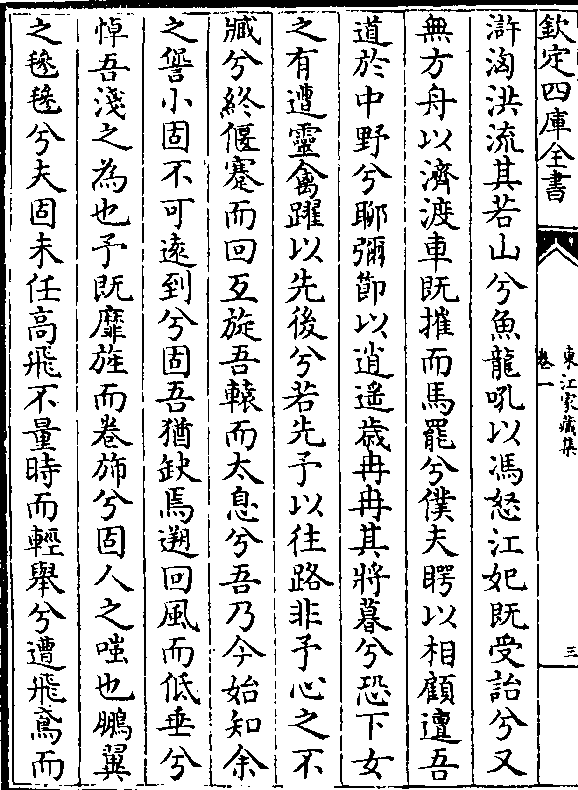 欽定四庫全書
東江家藏集
卷一
三
滸洶洪流其若山兮魚龍吼以馮怒江妃既受詒兮又
無方舟以濟渡車既摧而馬罷兮僕夫睯以相顧邅吾
道於中野兮聊彌節以逍遥歲冉冉其將暮兮恐下女
之有遭靈禽躍以先後兮若先予以往路非予心之不
臧兮終偃蹇而回互旋吾轅而太息兮吾乃今始知余
之
小固不可遠到兮固吾猶缺焉遡回風而低垂兮
悼吾淺之為也予既靡旌而卷斾兮固人之嗤也鵬翼
之毶毶兮夫固未任高飛不量時而輕舉兮遭飛鳶而